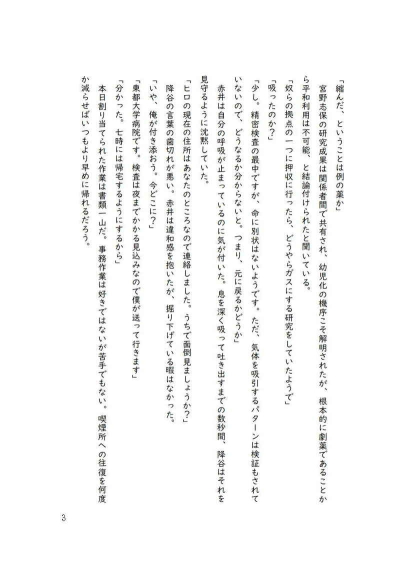 「縮んだ、ということは例の薬か」
　宮野志保の研究成果は関係者間で共有され、幼児化の機序こそ解明されたが、根本的に劇薬であることか
ら平和利用は不可能、と結論付けられたと聞いている。
「奴らの拠点の一つに押収に行ったら、どうやらガスにする研究をしていたようで」
「吸ったのか？」
「少し。精密検査の最中ですが、命に別状はないようです。ただ、気体を吸引するパターンは検証もされて
いないので、どうなるか分からないと。つまり、元に戻るかどうか」
　赤井は自分の呼吸が止まっているのに気が付いた。息を深く吸って吐き出すまでの数秒間、降谷はそれを
見守るように沈黙していた。
「ヒロの現在の住所はあなたのところなので連絡しました。うちで面倒見ましょうか？」
　降谷の言葉の歯切れが悪い。赤井は違和感を抱いたが、掘り下げている暇はなかった。
「いや、俺が付き添おう。今どこに？」
「東都大学病院です。検査は夜までかかる見込みなので僕が送って行きます」
「分かった。七時には帰宅するようにするから」
　本日割り当てられた作業は書類一山だ。事務作業は好きではないが苦手でもない。喫煙所への往復を何度
か減らせばいつもより早めに帰れるだろう。
3